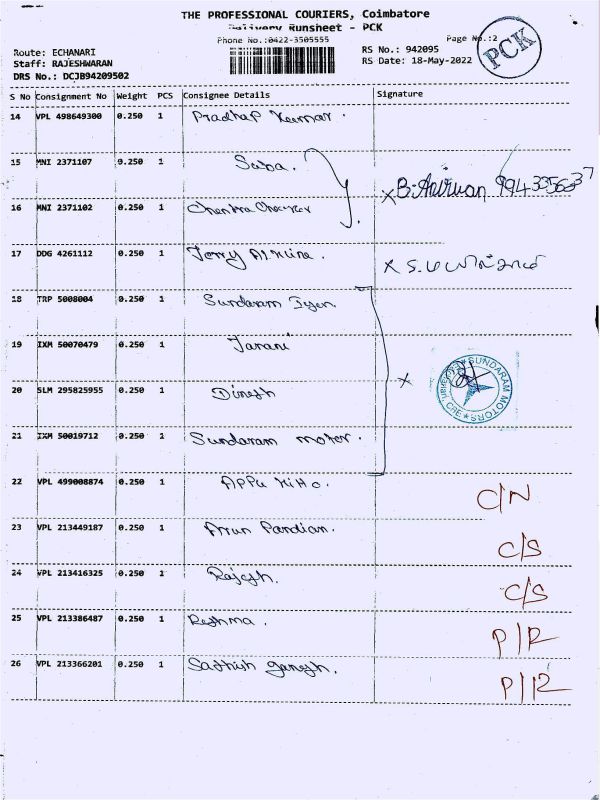 THE PROFESSIONAL COURIERS, Coimbatore
Delivery Runsheet - PCK
Phone No.:0422-3505555
Page No.:2
PCK
Route: ECHANARI
Staff: RAJESHWARAN
DRS No.: DCJB94209502
RS No.: 942095
RS Date: 18-May-2022
S No Consignment No Weight PCS Consignee Details Signature
14 VPL 498649300 0.250 1 Pradhap Kumar.
15 MNI 2371107 0.250 1 Saba.
16 MNI 2371102 0.250 1 Chandra
17 DDG 4261112 0.250 1 Jerry
18 TRP 5008004 0.250 1 Sundaram
19 IXM 50070479 0.250 1 Janani
20 SLM 295825955 0.250 1 Dinesh
SUNDARAM MOTORS
21 IXM 50019712 0.250 1 Sundaram motor.
22 VPL 499008874 0.250 1 Appu C/N
23 VPL 213449187 0.250 1 Arun Pandian. C/S
24 VPL 213416325 0.250 1 Rajesh. C/S
25 VPL 213386487 0.250 1 Reshma. P/R
26 VPL 213366201 0.250 1 Sathish Ganesh. P/R